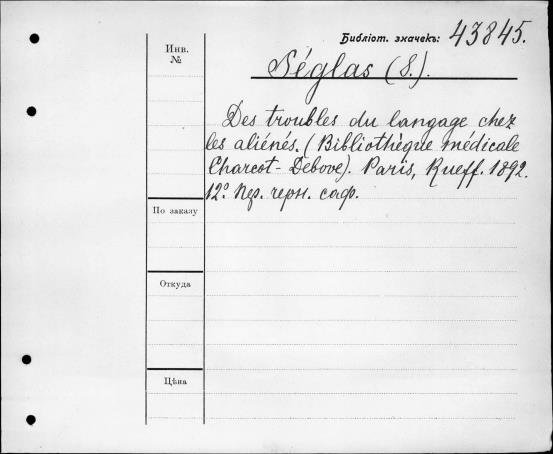 Библіот. значекъ: 43845.
Инв.
№
Séglas (S.).
Des troubles du langage chez
les aliénés. (Bibliothèque médicale
Charcot-Debove). Paris, Rueff. 1892.
12º. Пер. черн. саф.
По заказу
Откуда
Цѣна